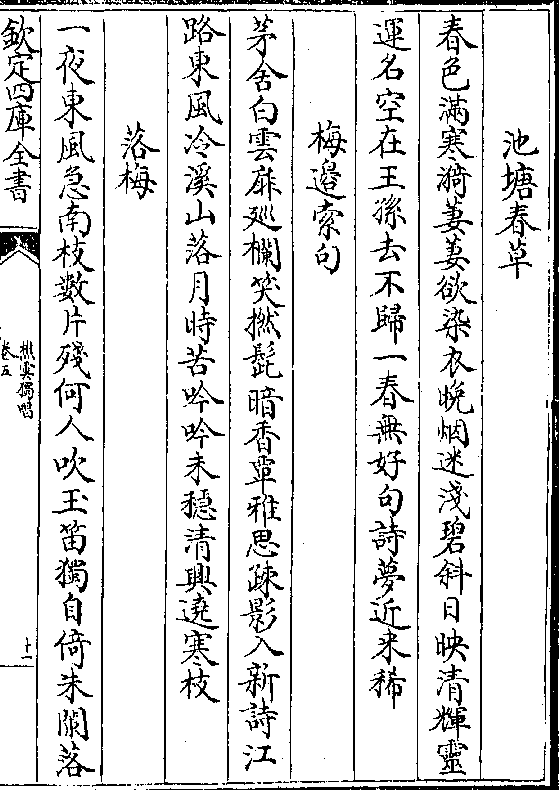 池塘春草
春色滿寒漪萋萋欲染衣晚烟迷淺碧斜日映清輝靈
運名空在王孫去不歸一春無好句詩夢近來稀
梅邊索句
茅舍白雲扉廵欄笑撚髭暗香覃雅思疎影入新詩江
路東風冷溪山落月時苦吟吟未穩清興遶寒枝
落梅
一夜東風急南枝數片殘何人吹玉笛獨自倚朱闌落
欽定四庫全書
樵雲獨唱
卷五
十一